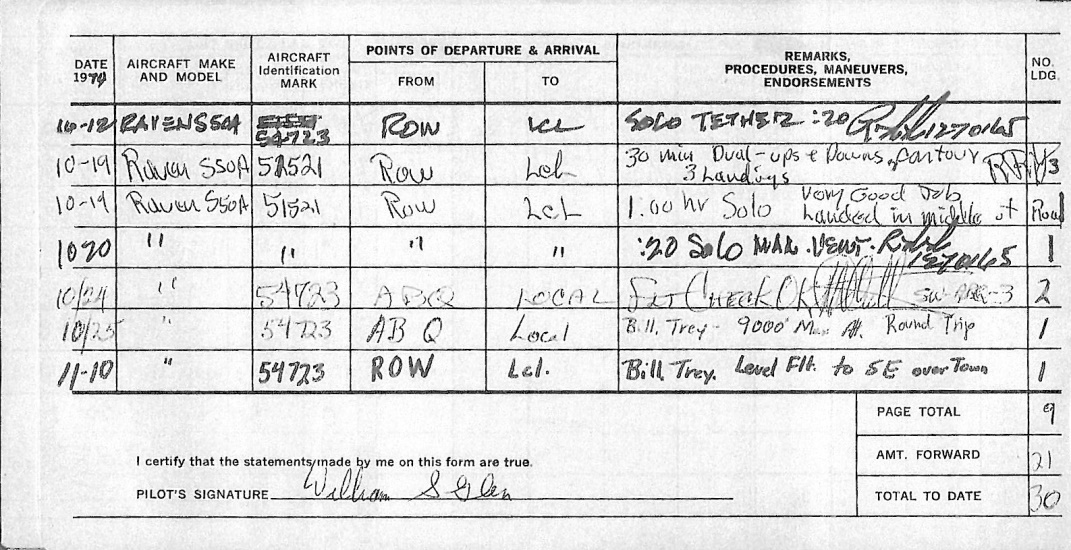 DATE 1974 AIRCRAFT MAKE AND MODEL AIRCRAFT Identification MARK POINTS OF DEPARTURE & ARRIVAL FROM TO REMARKS, PROCEDURES, MANEUVERS, ENDORSEMENTS NO. LDG.
10-12 RAVEN S50A 54723 ROW LCL SOLO TETHER :20 1270165
10-19 Raven S50A 51521 Row Lcl 30 min Dual-ups & Downs, Contour 3 Landings 3
10-19 Raven S50A 51521 Row LcL 1.00 hr Solo Very Good Job Landed in middle of Road 1
10 20 " " " " :20 Solo MAN. VENT. 1270165 1
10/24 " 54723 ABQ LOCAL FLT CHECK OK 2
10/25 " 54723 ABQ Local Bill, Trey - 9000' Max Alt. Round Trip 1
11-10 " 54723 ROW Lcl. Bill, Trey. Level Flt. to SE over Town 1
PAGE TOTAL 9
I certify that the statements made by me on this form are true. AMT. FORWARD 21
PILOT'S SIGNATURE William S Glen TOTAL TO DATE 30